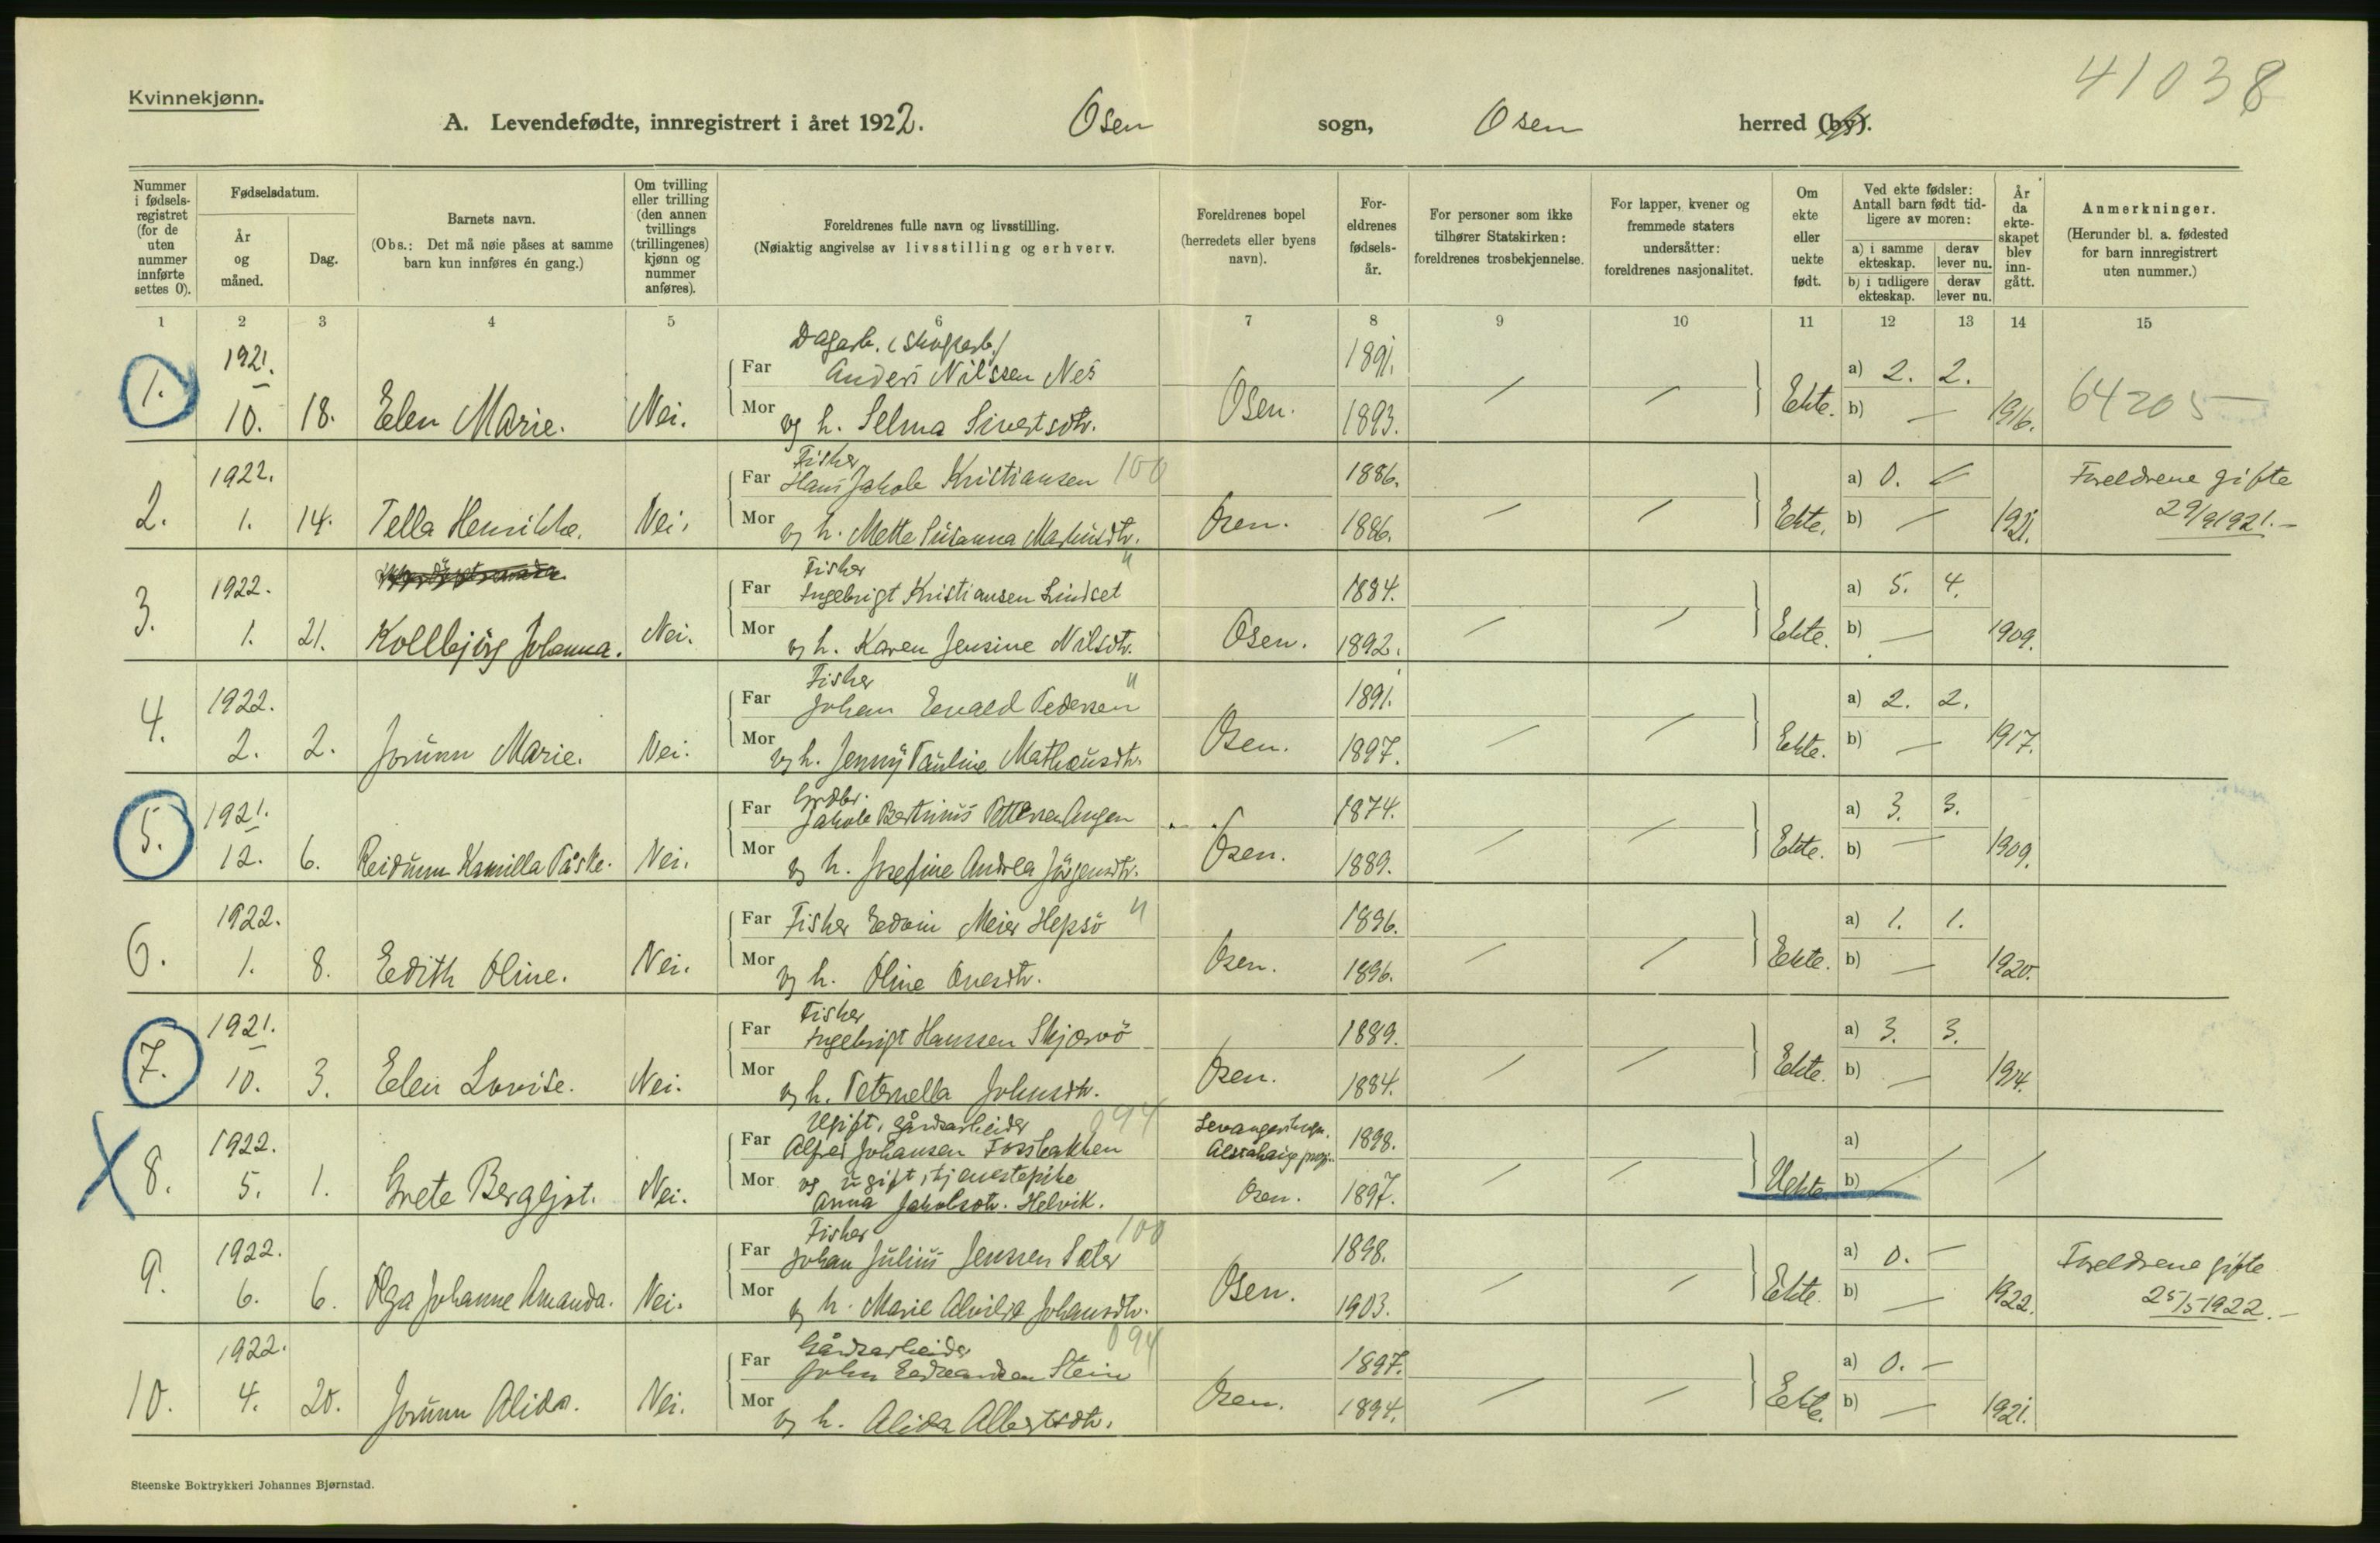 41038
Kvinnekjønn.
A. Levendefødte, innregistrert i året 1922. Osen sogn, Osen herred (by).
Nummer i fødselsregistret (for de uten nummer innførte settes 0).
Fødselsdatum.
År og måned.
Dag.
Barnets navn.
(Obs.: Det må nøie påses at samme barn kun innføres én gang.)
Om tvilling eller trilling (den annen tvillings (trillingenes) kjønn og nummer anføres).
Foreldrenes fulle navn og livsstilling.
(Nøiaktig angivelse av livsstilling og erhverv.
Foreldrenes bopel (herredets eller byens navn).
Foreldrenes fødselsår.
For personer som ikke tilhører Statskirken: foreldrenes trosbekjennelse.
For lapper, kvener og fremmede staters undersåtter: foreldrenes nasjonalitet.
Om ekte eller uekte født.
Ved ekte fødsler: Antall barn født tidligere av moren:
a) i samme ekteskap. derav lever nu.
b) i tidligere ekteskap. derav lever nu.
År da ekteskapet blev inngått.
Anmerkninger.
(Herunder bl. a. fødested for barn innregistrert uten nummer.)
1 2 3 4 5 6 7 8 9 10 11 12 13 14 15
Dagarb. (skogsarb.)
1. 1921. Far Anders Nilssen Nes 1891. a) 2. 2.
10. 18. Elen Marie. Nei. Mor og h. Selma Sivertsdtr. Osen. 1893. Ekte. b) — 1916. 64205
Fisker
2. 1922. Far Hans Jakob Kristiansen 100 1886. a) 0. Foreldrene gifte
1. 14. Tella Henrikke. Nei. Mor og h. Mette Susanna Martinsdtr. Osen. 1886. Ekte. b) — 1921. 29/9 1921.—
Fisker "
3. 1922. Far Ingebrigt Kristiansen Lindset 1884. a) 5. 4.
1. 21. Kollbjörg Johanna. Nei. Mor og h. Karen Jensine Nilsdtr. Osen. 1892. Ekte. b) — 1909.
Fisker "
4. 1922. Far Johan Edvald Pedersen 1891. a) 2. 2.
2. 2. Jorunn Marie. Nei. Mor og h. Jenny Pauline Matheusdtr. Osen. 1897. Ekte. b) — 1917.
Grdbr.
5. 1921. Far Jakob Bertinus Pettersen Angen 1874. a) 3. 3.
12. 6. Reidunn Kamilla Påske. Nei. Mor og h. Josefine Andrea Jörgensdtr. Osen. 1889. Ekte. b) — 1909.
6. 1922. Far Fisker Edvin Meier Hepsö " 1896. a) 1. 1.
1. 8. Edith Oline. Nei. Mor og h. Oline Ovesdtr. Osen. 1896. Ekte. b) — 1920.
Fisker
7. 1921. Far Ingebrigt Hanssen Skjærvö 1889. a) 3. 3.
10. 3. Elen Lovise. Nei. Mor og h. Peternella Johnsdtr. Osen. 1884. Ekte. b) — 1914.
Ugift, gårdsarbeider 094
X 8. 1922. Far Alfred Johansen Fossbakken 1898. a)
5. 1. Grete Bergljot. Nei. Mor og ugift, tjenestepike
Anna Jakobsdtr. Helvik. Osen. 1897. Uekte. b)
Fisker 100
9. 1922. Far Johan Julius Jenssen Sæter 1898. a) 0. — Foreldrene gifte
6. 6. Olga Johanne Amanda. Nei. Mor og h. Marie Alvilda Johansdtr. Osen. 1903. Ekte. b) — 1922. 25/5 1922.—
Gårdsarbeider 094
10. 1922. Far John Edreansen Stein 1897. a) 0. —
4. 20. Jorunn Alida. Nei. Mor og h. Alida Albertsdtr. Osen. 1894. Ekte. b) — 1921.
Steenske Boktrykkeri Johannes Bjørnstad.